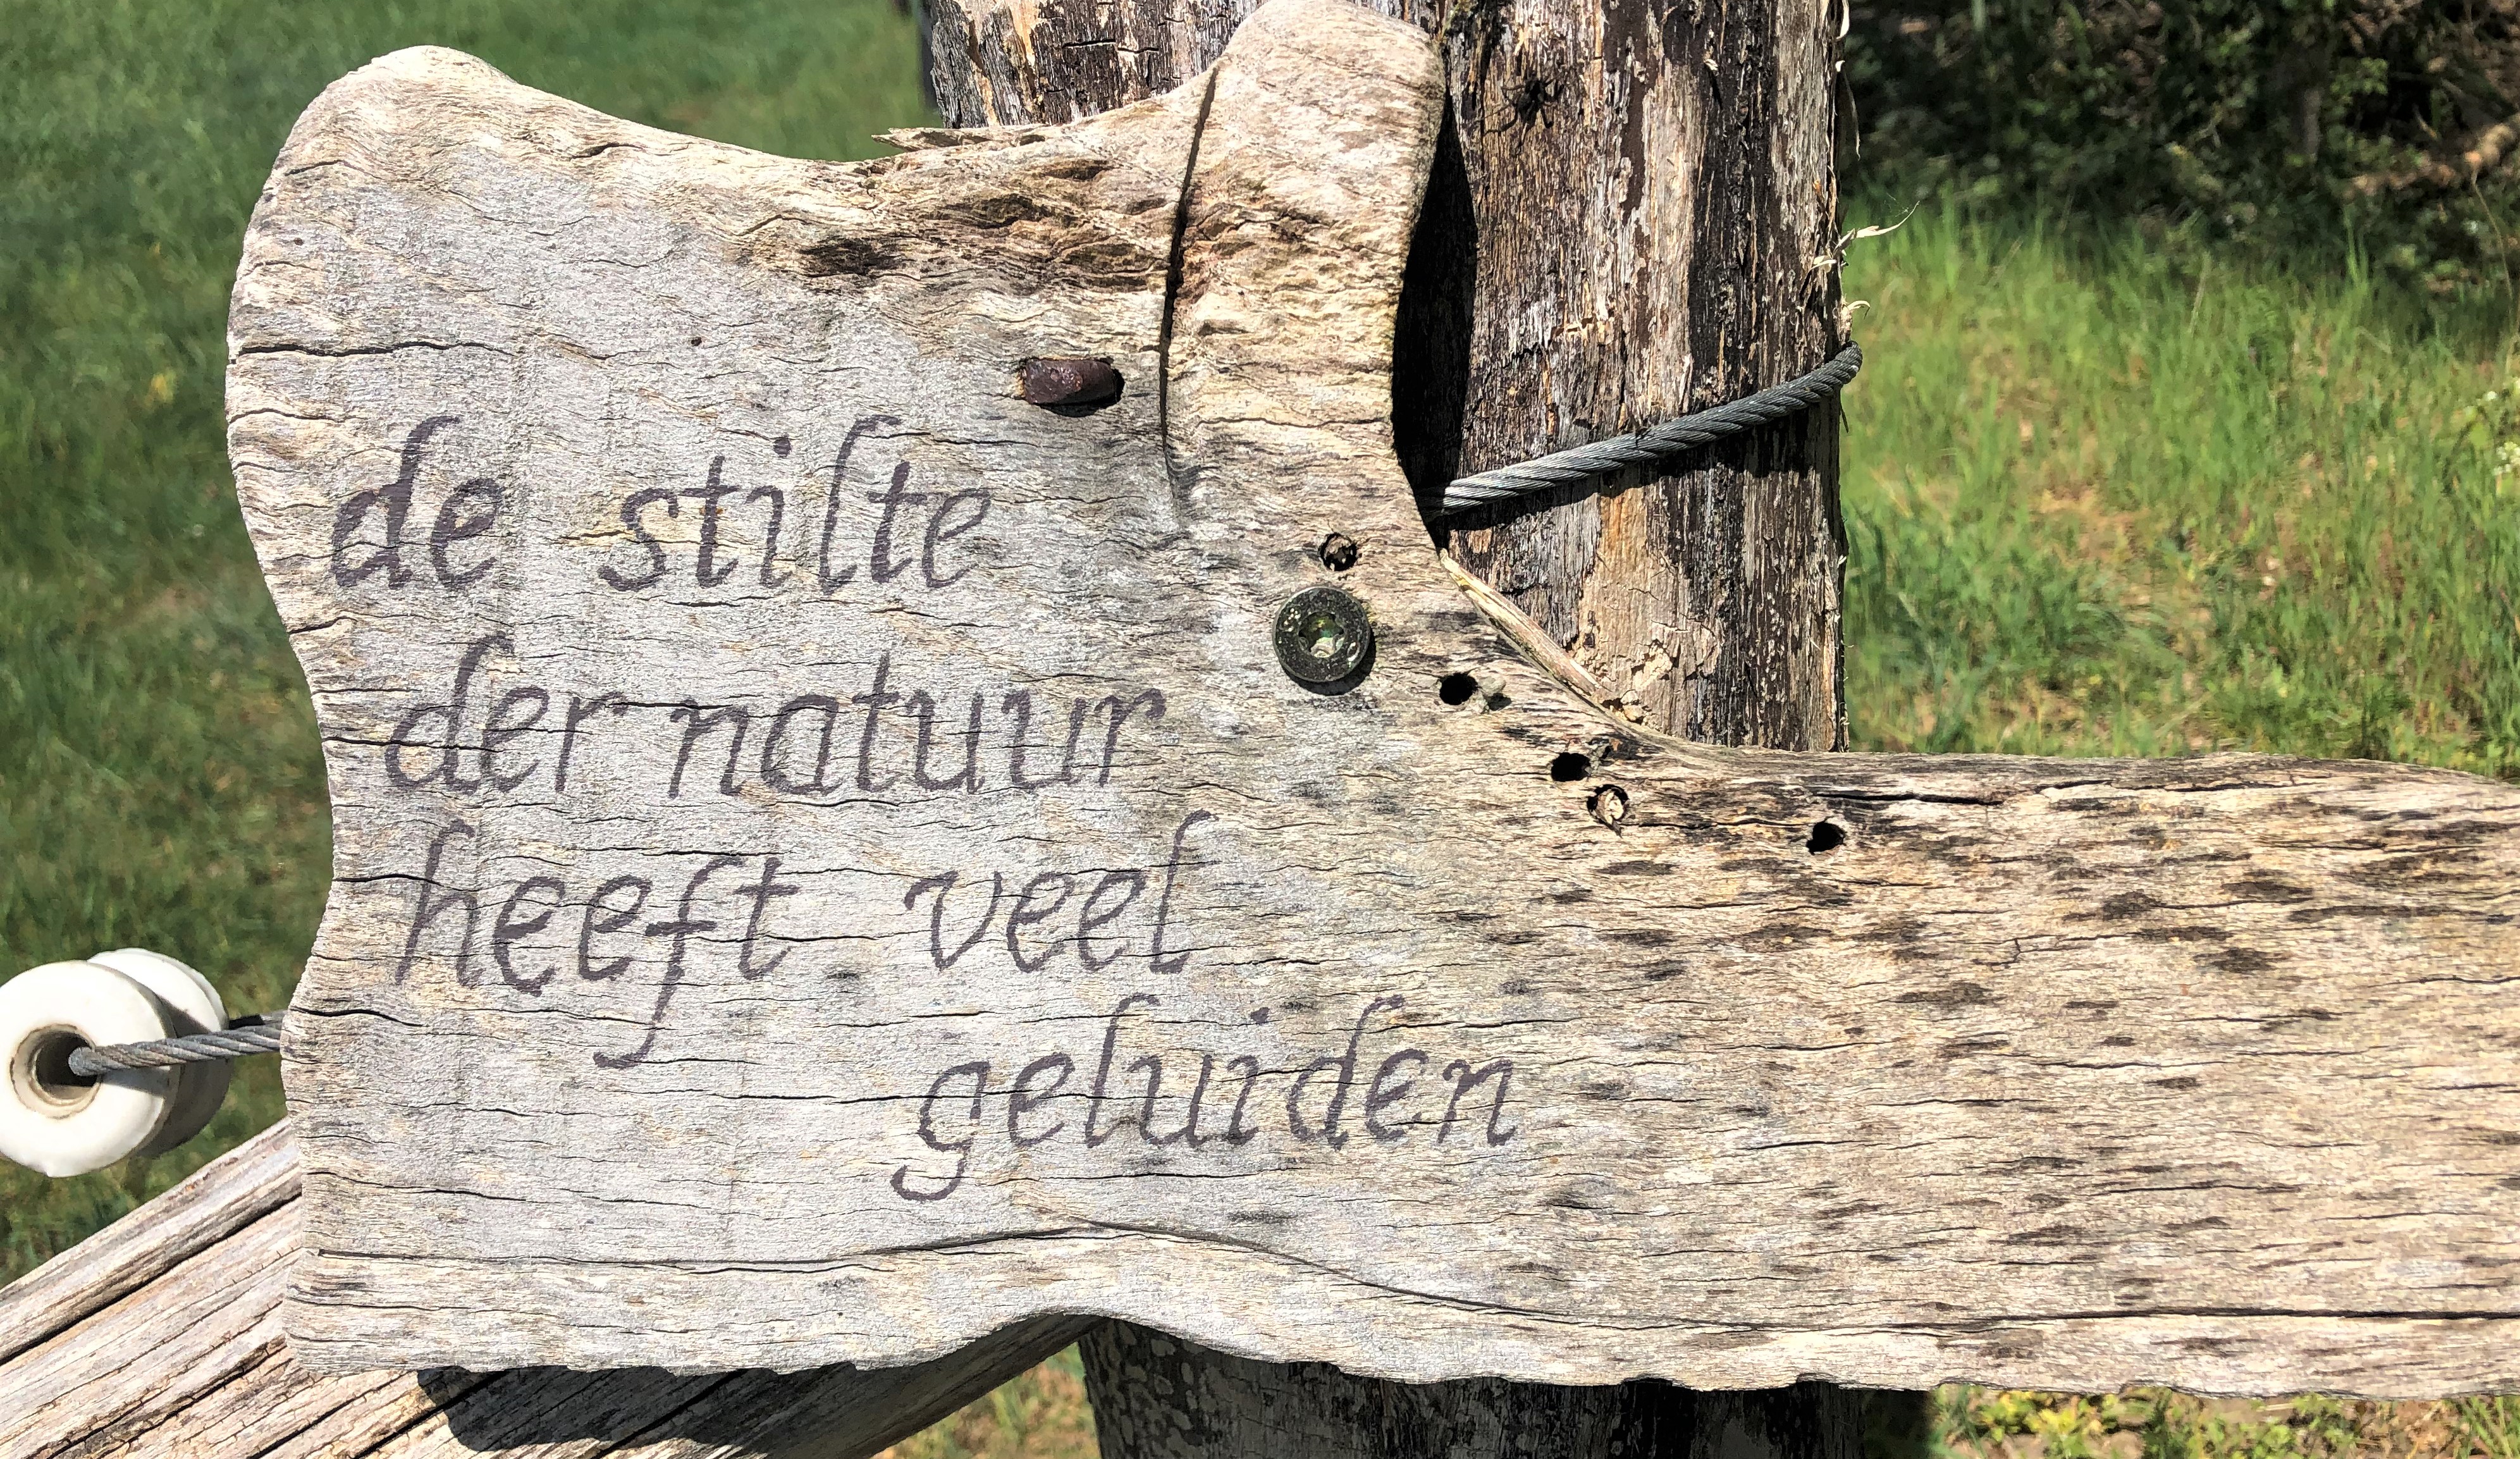 de stilte
der natuur
heeft veel
geluiden